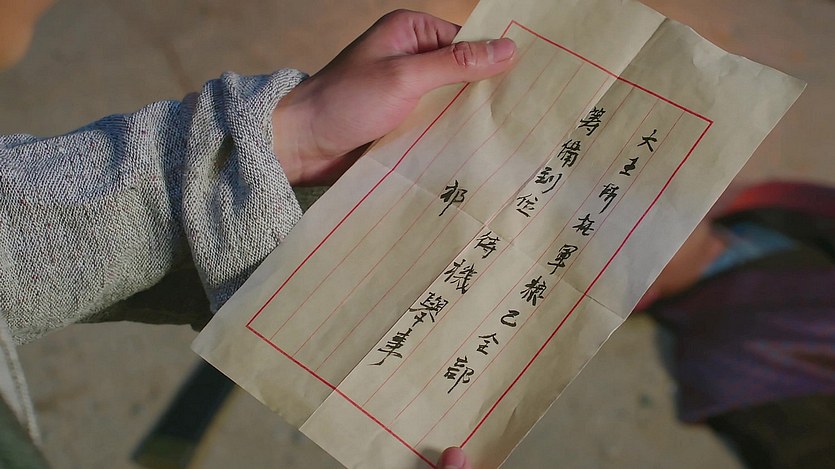 大主所托軍粮已全部
籌備到位 待機舉事
祁